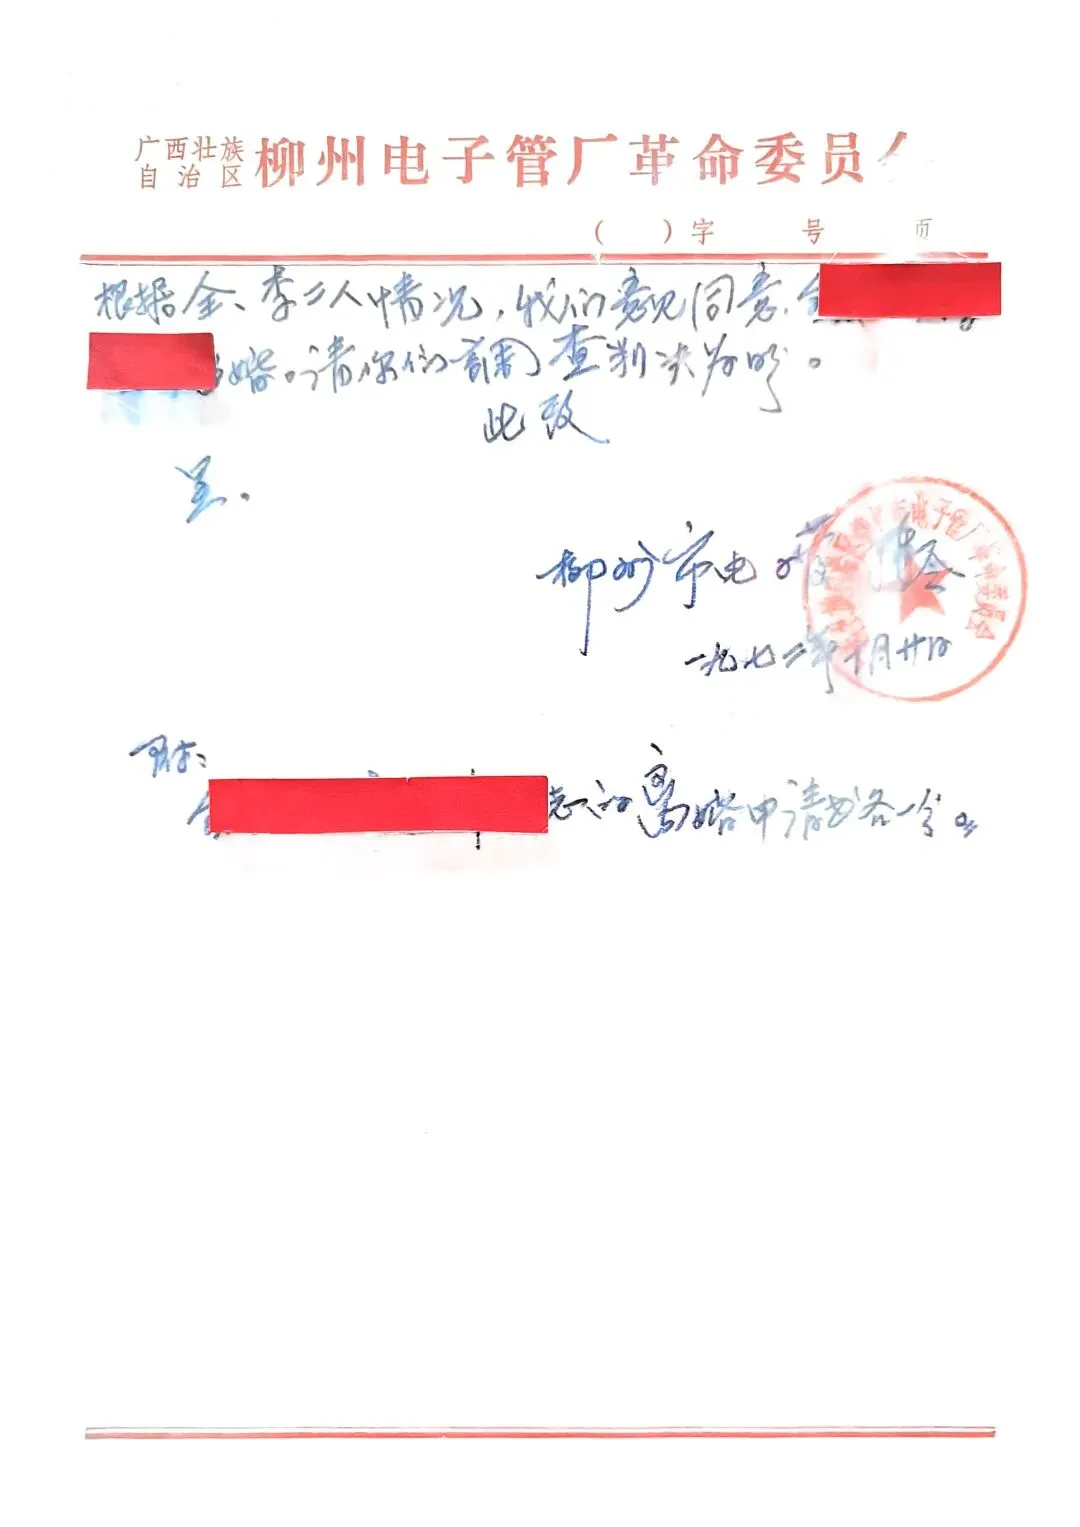 广西壮族
自治区 柳州电子管厂革命委员
( )字 号 页
根据金、李二人情况,我们意见同意,金
婚。请你们调查判决为盼。
此致
柳州市电子 厂革 会
一九七二年 月廿 日
附:
志的离婚申请书各一份。